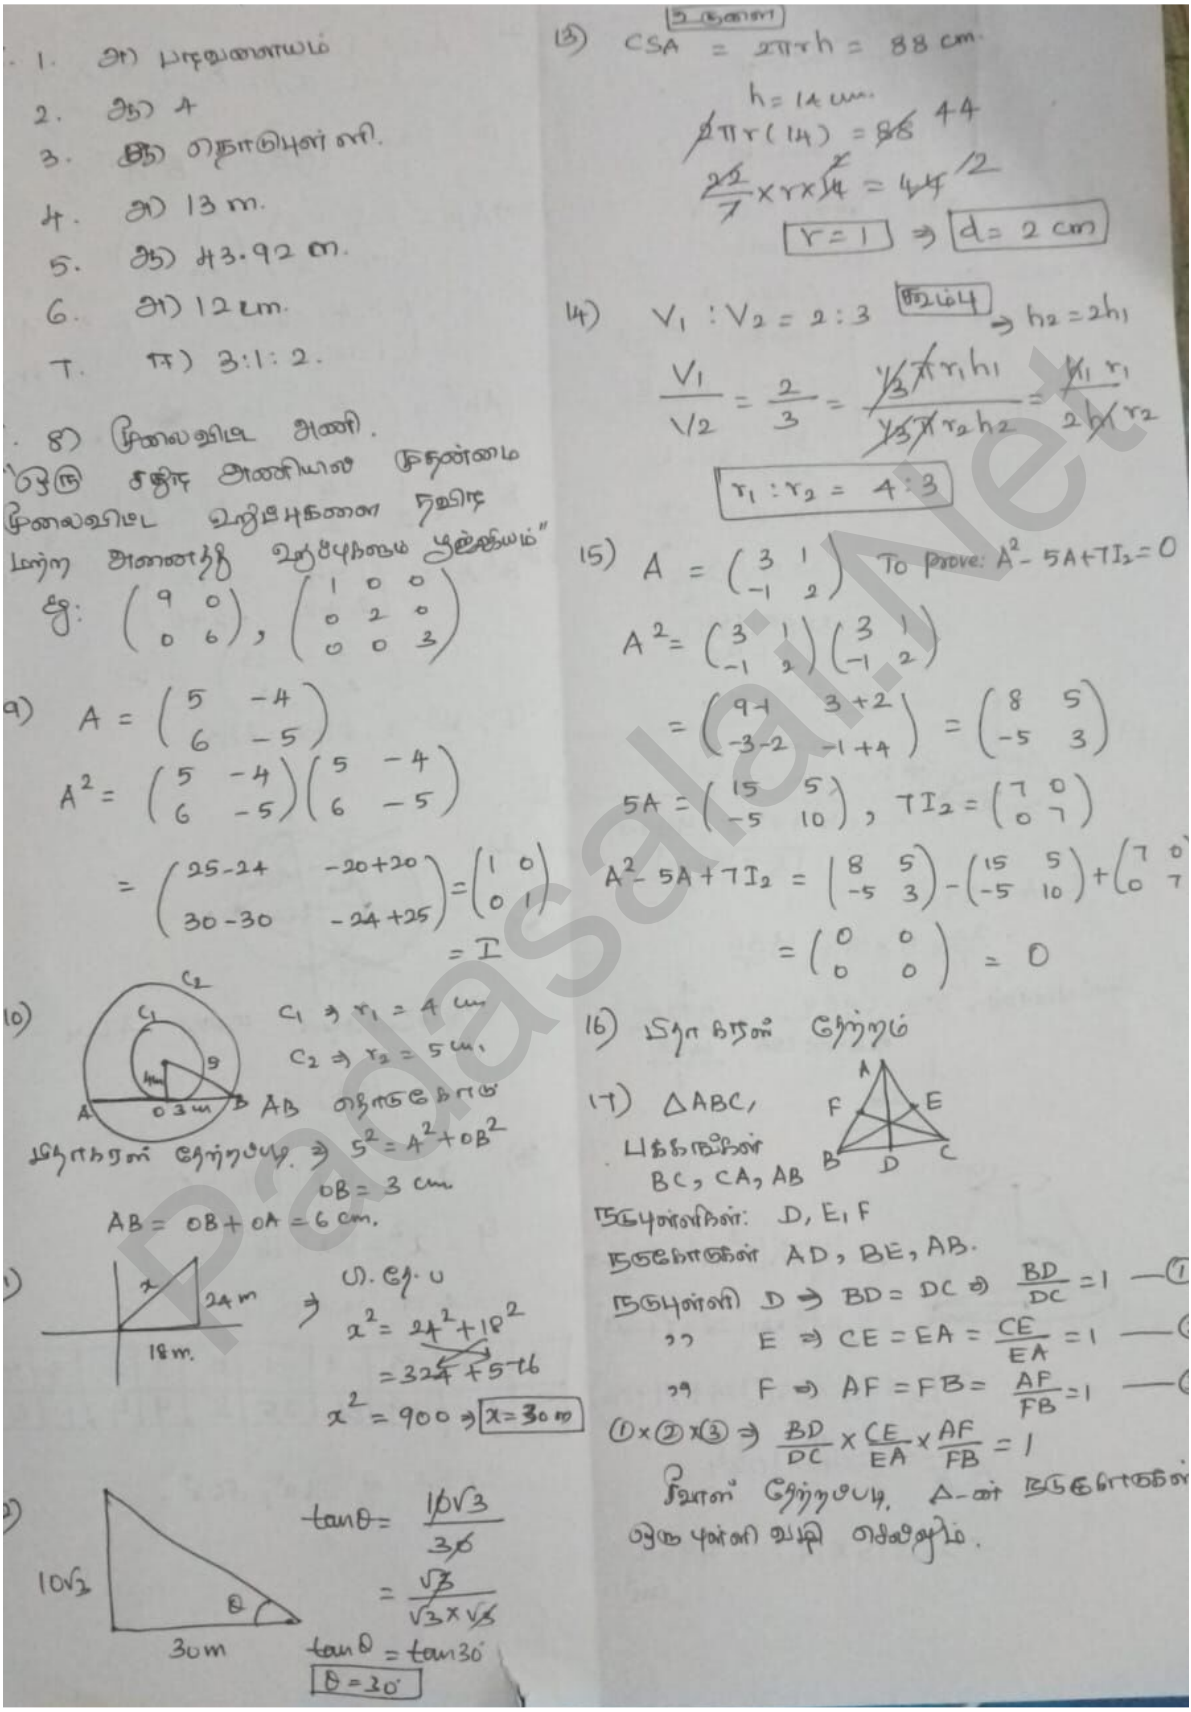 1. அ) படிவளையம்
2. ஆ) 4
3. ஆ) தொடுபுள்ளி.
4. அ) 13 m.
5. ஆ) 43.92 m.
6. அ) 12 cm.
7. ஈ) 3:1:2.
8) மூலைவிட்ட அணி.
"ஒரு சதுர அணியில் முதன்மை
மூலைவிட்ட உறுப்புகளை தவிர
மற்ற அனைத்து உறுப்புகளும் பூஜ்ஜியம்"
எ.கா: (9 0 / 0 6), (1 0 0 / 0 2 0 / 0 0 3)
9) A = (5 -4 / 6 -5)
A² = (5 -4 / 6 -5)(5 -4 / 6 -5)
= (25-24 -20+20 / 30-30 -24+25) = (1 0 / 0 1)
= I
10) C₂ C₁ C₁ ⇒ r₁ = 4 cm
C₂ ⇒ r₂ = 5 cm.
4cm 5
A O 3 cm B AB தொடுகோடு
பிதாகரஸ் தேற்றப்படி ⇒ 5² = 4² + OB²
OB = 3 cm
AB = OB + OA = 6 cm.
x 24 m 18 m.
⇒ பி. தே. ப
x² = 24² + 18²
= 324 + 576
x² = 900 ⇒ x = 30 m
10√3 θ 30m
tanθ = 10√3/30
= √3/√3×√3
tanθ = tan30°
θ = 30°
13) உருளை
CSA = 2πrh = 88 cm.
h = 14 cm.
2πr(14) = 88 44
22/7 × r × 14 2 = 44 2
r = 1 ⇒ d = 2 cm
14) V₁ : V₂ = 2 : 3 கூம்பு ⇒ h₂ = 2h₁
V₁/V₂ = 2/3 = 1/3 π r₁h₁ / 1/3 π r₂h₂ = h₁ r₁ / 2h₁ r₂
r₁ : r₂ = 4 : 3
15) A = (3 1 / -1 2) To prove: A² - 5A + 7I₂ = 0
A² = (3 1 / -1 2)(3 1 / -1 2)
= (9-1 3+2 / -3-2 -1+4) = (8 5 / -5 3)
5A = (15 5 / -5 10), 7I₂ = (7 0 / 0 7)
A² - 5A + 7I₂ = (8 5 / -5 3) - (15 5 / -5 10) + (7 0 / 0 7)
= (0 0 / 0 0) = 0
16) பிதாகரஸ் தேற்றம்
17) △ABC, A F E B D C
பக்கங்கள்
BC, CA, AB
நடுபுள்ளிகள்: D, E, F
நடுகோடுகள் AD, BE, AB.
நடுபுள்ளி D ⇒ BD = DC ⇒ BD/DC = 1 — ①
,, E ⇒ CE = EA = CE/EA = 1 —
,, F ⇒ AF = FB = AF/FB = 1 —
①×②×③ ⇒ BD/DC × CE/EA × AF/FB = 1
சீவாஸ் தேற்றப்படி, △-ன் நடுகோடுகள்
ஒரு புள்ளி வழி செல்லும்.
Padasalai.Net